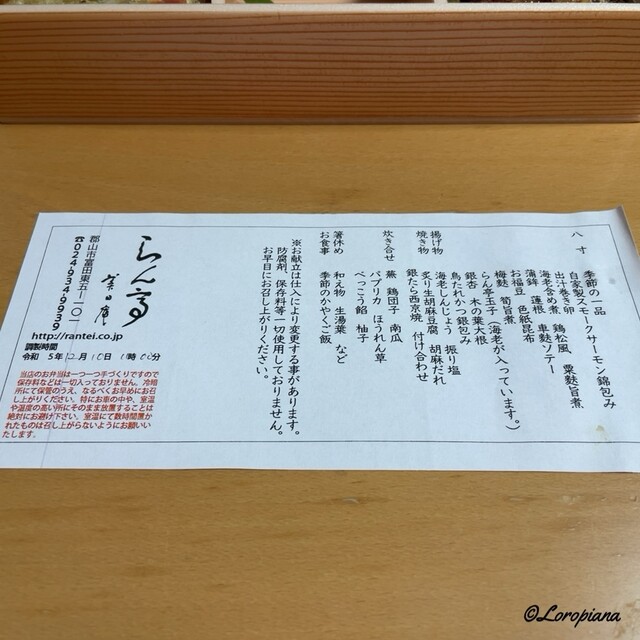 八寸　季節の一品
自家製スモークサーモン錦包み
出汁巻き卵　鶏松風　粟麩旨煮
海老含め煮　車麩ソテー
蒲鉾　蓮根　色紙昆布
お福豆
梅麩　筍旨煮
らん亭玉子（海老が入っています。）
銀杏　木の葉大根
揚げ物　鳥たれかつ銀包み
海老しんじょう　振り塩
焼き物　炙り生胡麻豆腐　胡麻だれ
銀たら西京焼　付け合わせ
炊き合せ　蕪　鶏団子　南瓜
パプリカ　ほうれん草
べっこう餡　柚子
箸休め　和え物　生湯葉　など
お食事　季節のかやくご飯
※お献立は仕入により変更する事があります。
防腐剤、保存料等一切使用しておりません。
お早目にお召し上がりください。
らん亭
美日庵
郡山市富田東五ー一〇一
☎024-934-9939
http://rantei.co.jp
調製時間
令和 5年12月10日 11時00分
当店のお弁当は一つ一つ手づくりですので
保存料などは一切入っておりません。冷暗
所にて保管のうえ、なるべくお早めにお召
し上がりください。特にお車の中や、室温
や温度の高い所にそのまま放置することは
絶対にお避け下さい。室温にて数時間置か
れたものは召し上がらないようにお願いい
たします。
©Loropiana